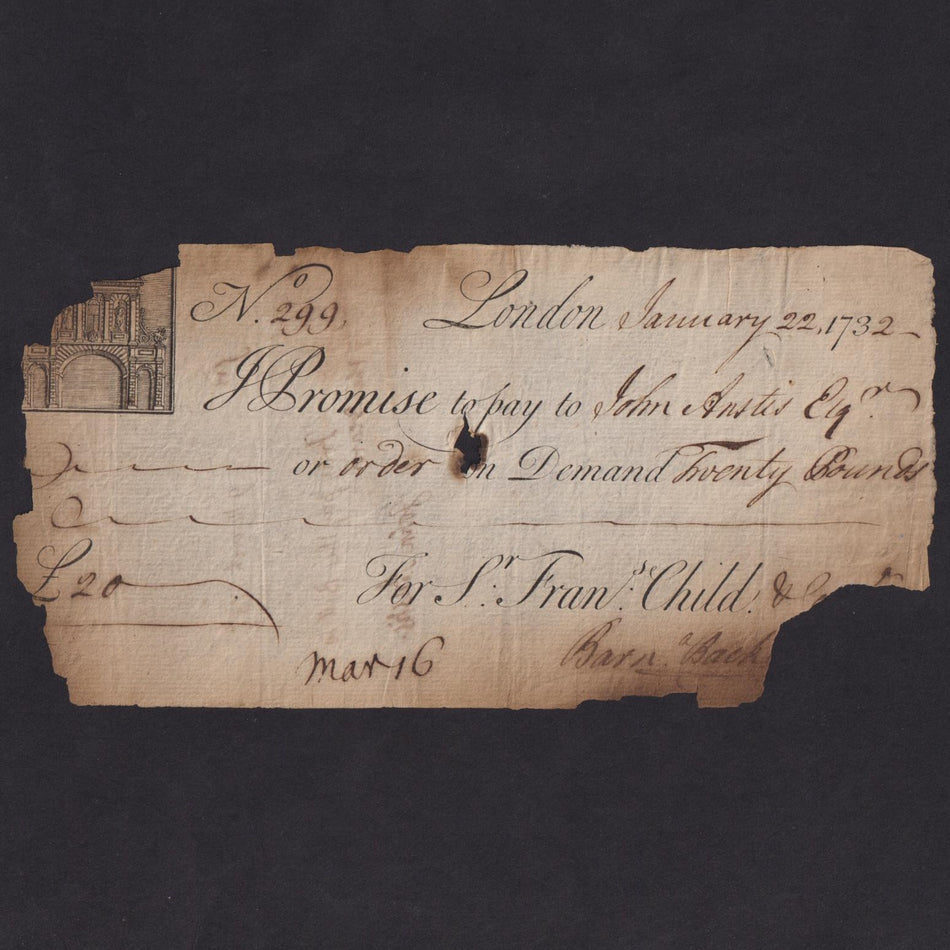 Nº. 299. London January 22, 1732
I Promise to pay to John Anstis Esqr.
or order on Demand Twenty Pounds
£ 20 For Sr. Franˢ. Child &
Mar 16 Barnª. Back